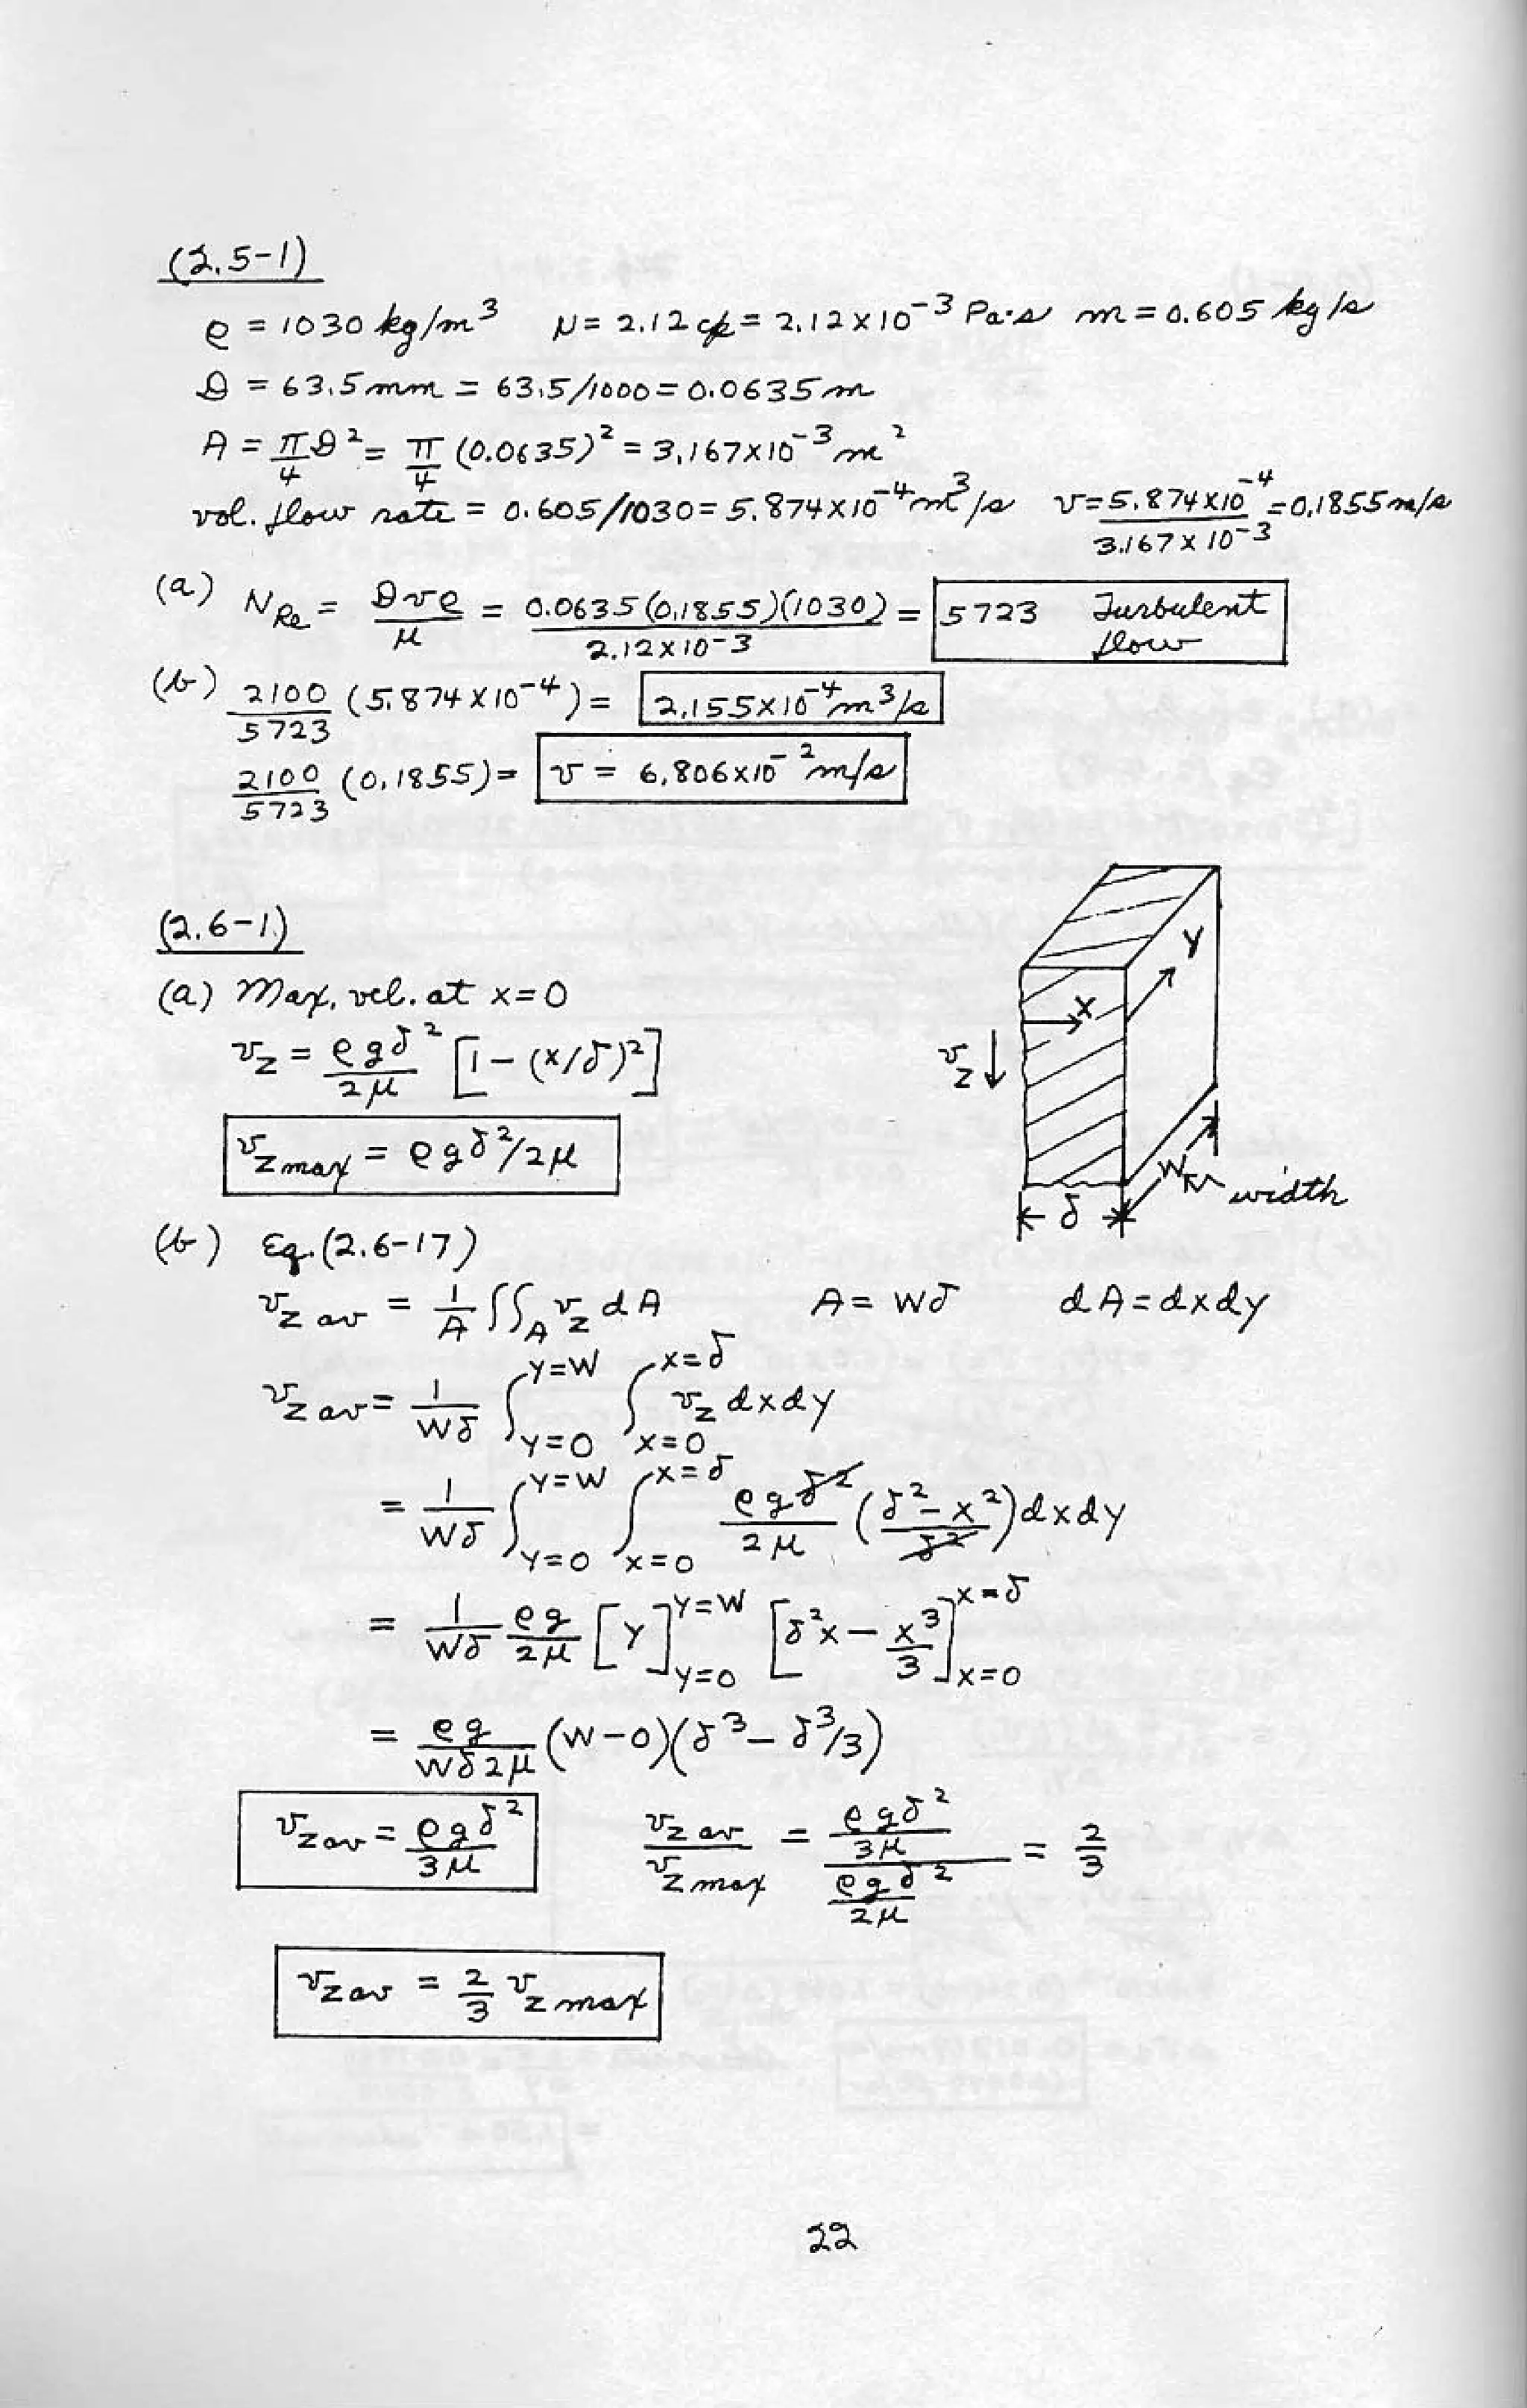 (2.5-1)
ρ = 1030 kg/m³ μ = 2.12 cp = 2.12 x 10⁻³ Pa·s m = 0.605 kg/s
D = 63.5 mm = 63.5/1000 = 0.0635 m
A = π/4 D² = π/4 (0.0635)² = 3.167x10⁻³ m²
vol. flow rate = 0.605/1030 = 5.874x10⁻⁴ m³/s v = 5.874x10⁻⁴/3.167x10⁻³ = 0.1855 m/s
(a) N_Re = Dvρ/μ = 0.0635(0.1855)(1030)/2.12x10⁻³ = 5723 Turbulent flow
(b) 2100/5723 (5.874x10⁻⁴) = 2.155x10⁻⁴ m³/s
2100/5723 (0.1855) = v = 6.806x10⁻² m/s
(2.6-1)
(a) Max. vel. at x=0
v_z = ρgδ²/2μ [1-(x/δ)²]
v_z max = ρgδ²/2μ
Y
X
v_z ↓
W
width
δ
(b) Eq. (2.6-17)
v_z av = 1/A ∫∫_A v_z dA A = Wδ dA = dxdy
v_z av = 1/Wδ ∫_{y=0}^{y=W} ∫_{x=0}^{x=δ} v_z dxdy
= 1/Wδ ∫_{y=0}^{y=W} ∫_{x=0}^{x=δ} ρgδ²/2μ (δ²-x²/δ²) dxdy
= 1/Wδ ρg/2μ [y]_{y=0}^{y=W} [δ²x - x³/3]_{x=0}^{x=δ}
= ρg/Wδ2μ (W-0)(δ³-δ³/3)
v_z av = ρgδ²/3μ v_z av/v_z max = (ρgδ²/3μ)/(ρgδ²/2μ) = 2/3
v_z av = 2/3 v_z max
22